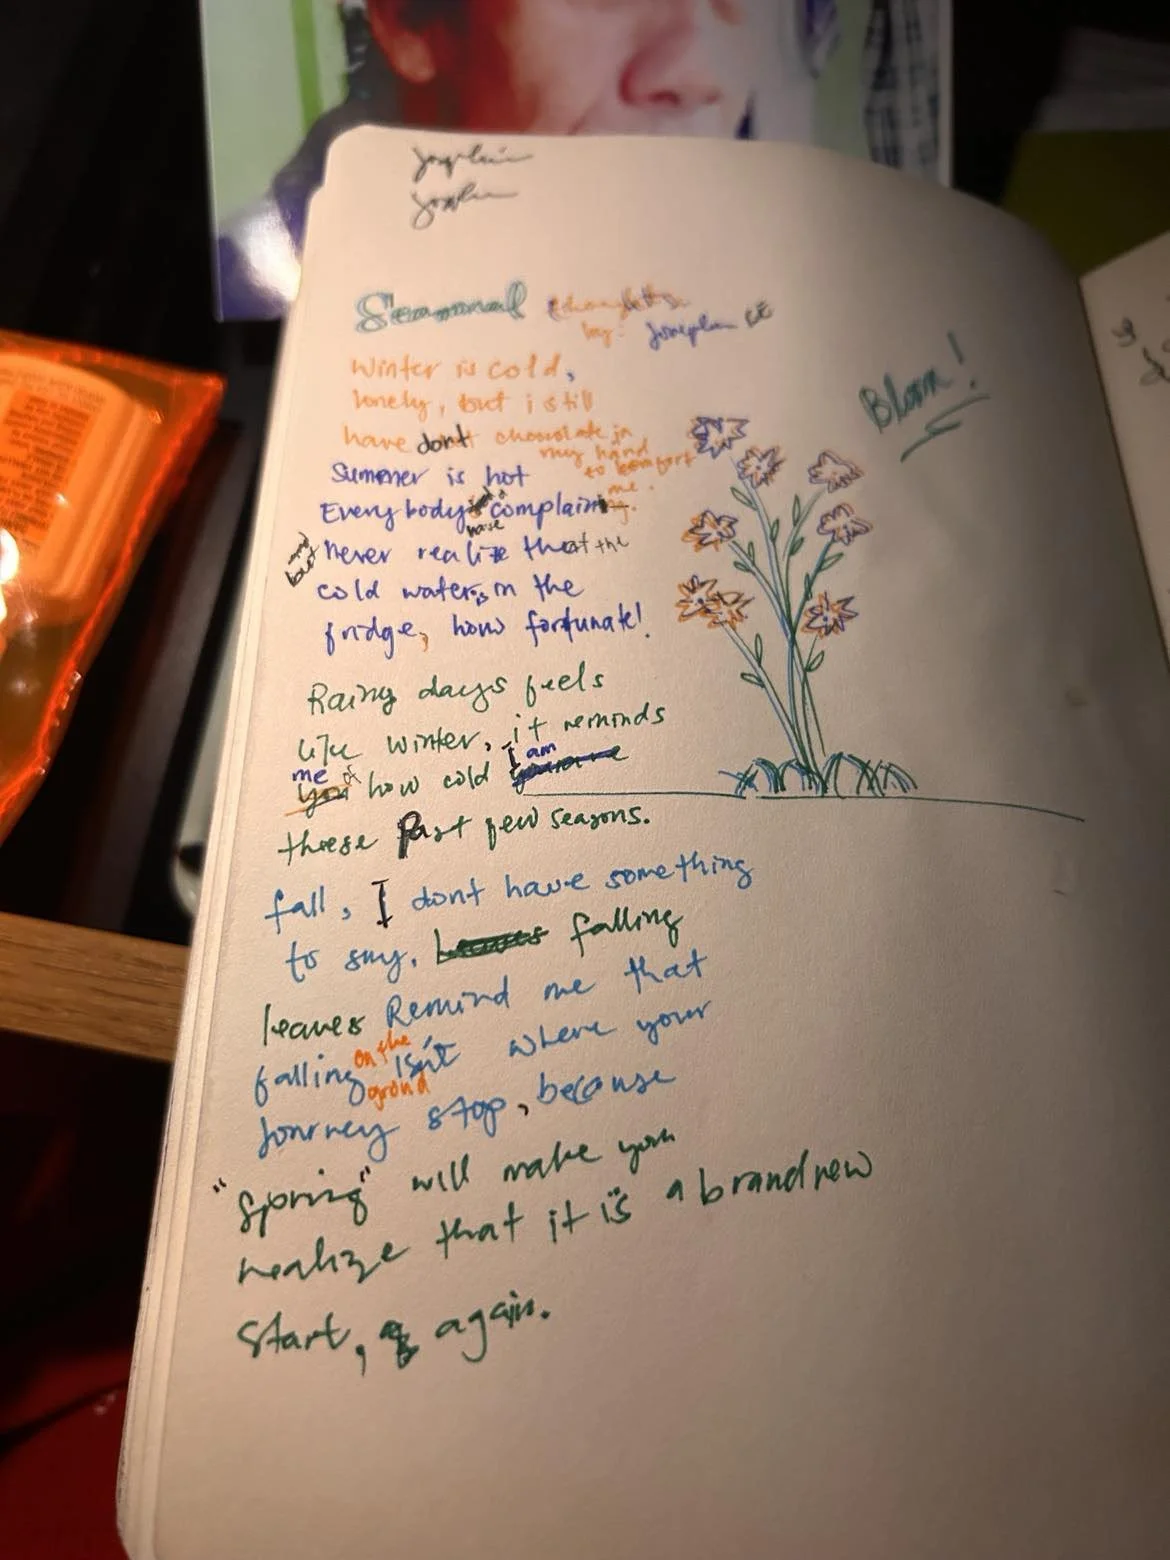 Seasonal thoughts
by:
Bloom!
Winter is cold,
lonely, but i still
have dont chocolate in
my hand
to comfort
me.
Summer is hot
Everybody complain
have
and
but never realize that the
cold water, in the
fridge, how fortunate!
Rainy days feels
like winter, it reminds
me of how cold I am
these past few seasons.
fall, I dont have something
to say. falling
leaves Remind me that
falling on the ground isn't where your
Journey stop, because
"Spring" will make you
realize that it is a brand new
start, again.